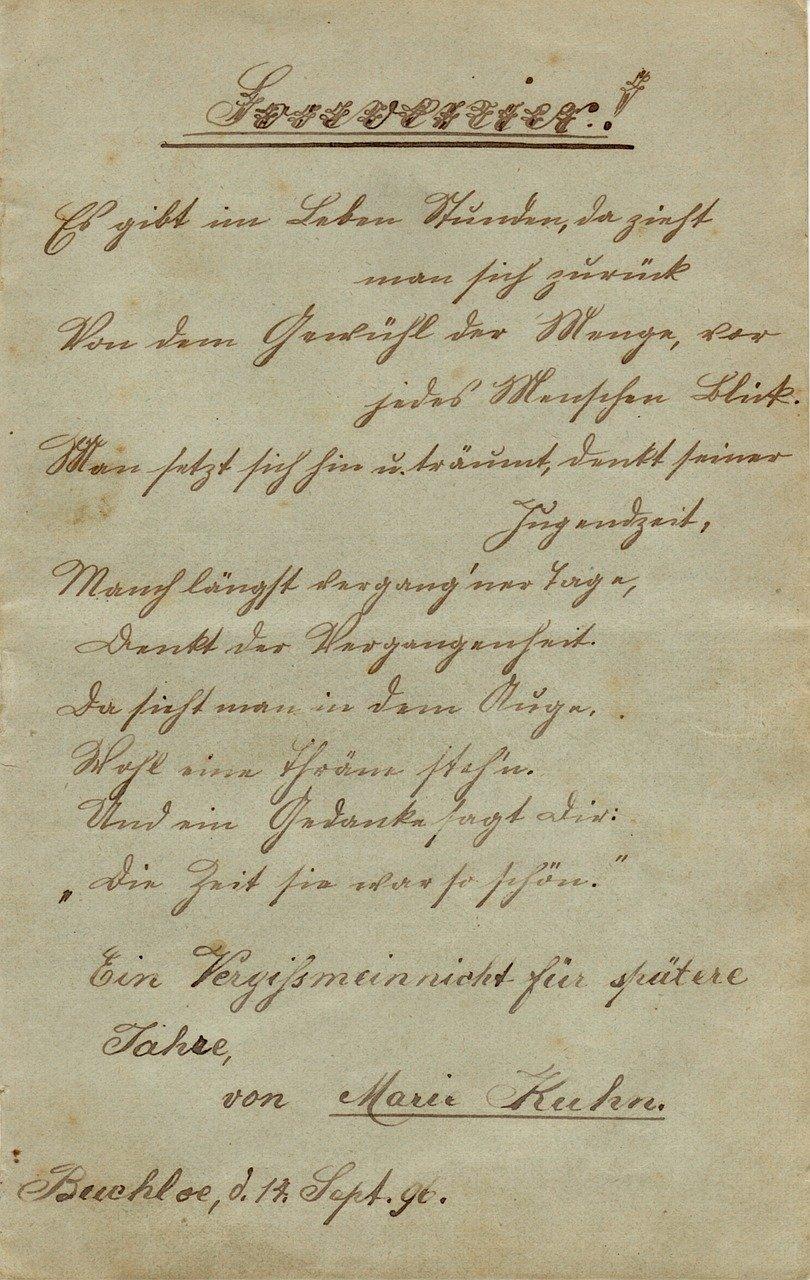 Souvenier.!
Es gibt im Leben Stunden, da zieht
man sich zurück
Von dem Gewühl der Menge, vor
jedes Menschen Blick.
Man setzt sich hin u. träumt, denkt seiner
Jugendzeit,
Manch längst vergang'ner Tage,
Denkt der Vergangenheit.
Da sieht man in dem Auge,
Wohl eine Thräne steh'n.
Und ein Gedanke sagt Dir:
„Die Zeit sie war so schön.“
Ein Vergißmeinnicht für spätere
Jahre,
von Marie Kuhn.
Buchloe, d. 14. Sept. 96.